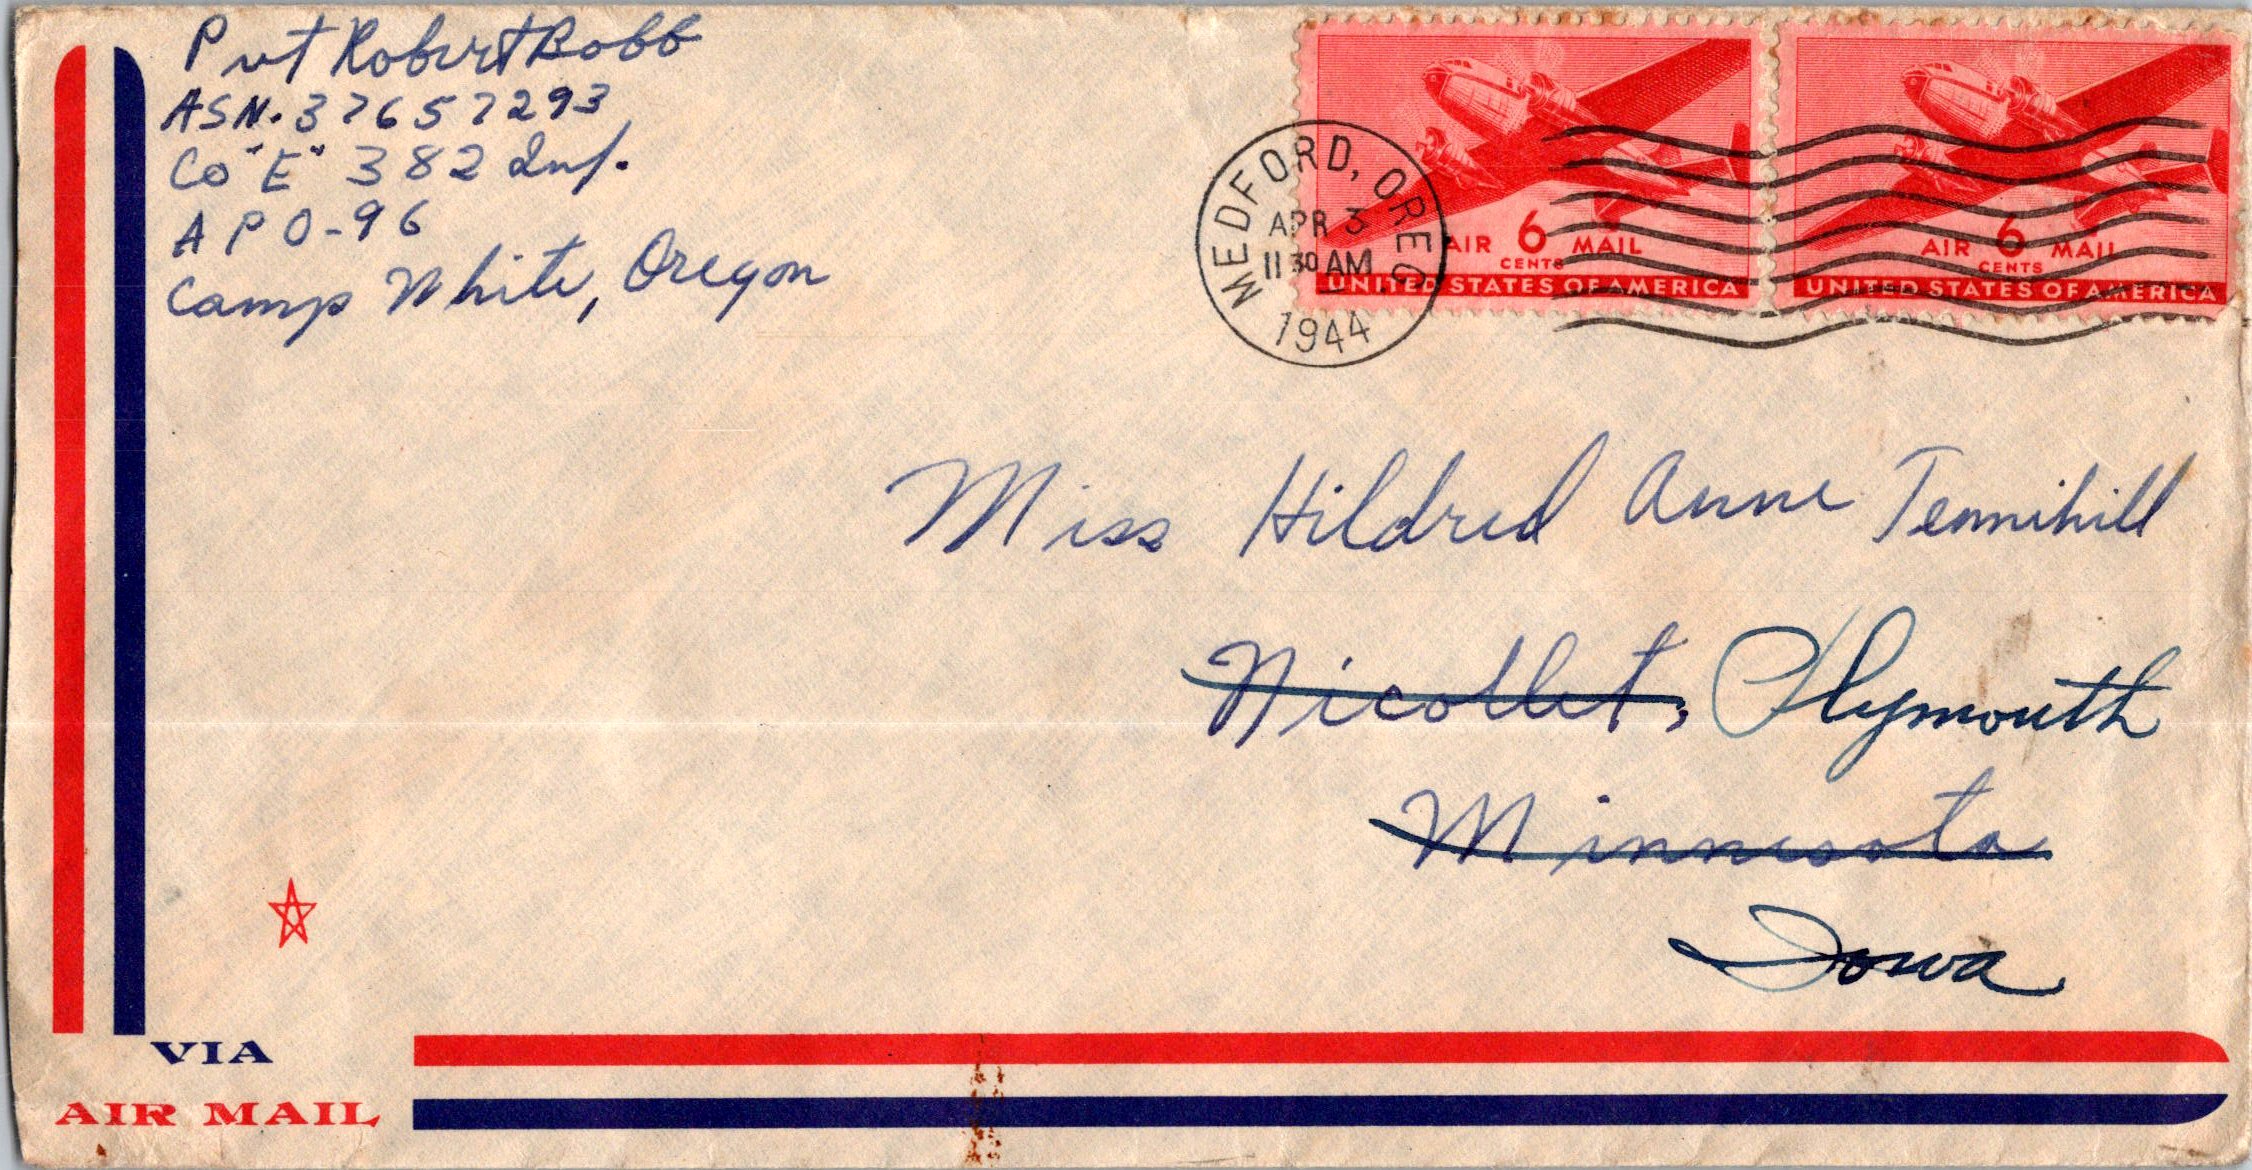 Pvt Robert Bobb
ASN. 37657293
Co "E" 382 Inf.
APO-96
Camp White, Oregon
MEDFORD, OREG
APR 3
11 30 AM
1944
AIR 6 MAIL
CENTS
UNITED STATES OF AMERICA
AIR 6 MAIL
CENTS
UNITED STATES OF AMERICA
Miss Hildred Anne Tennihill
Nicollet, Plymouth
Minnesota
Iowa
VIA
AIR MAIL